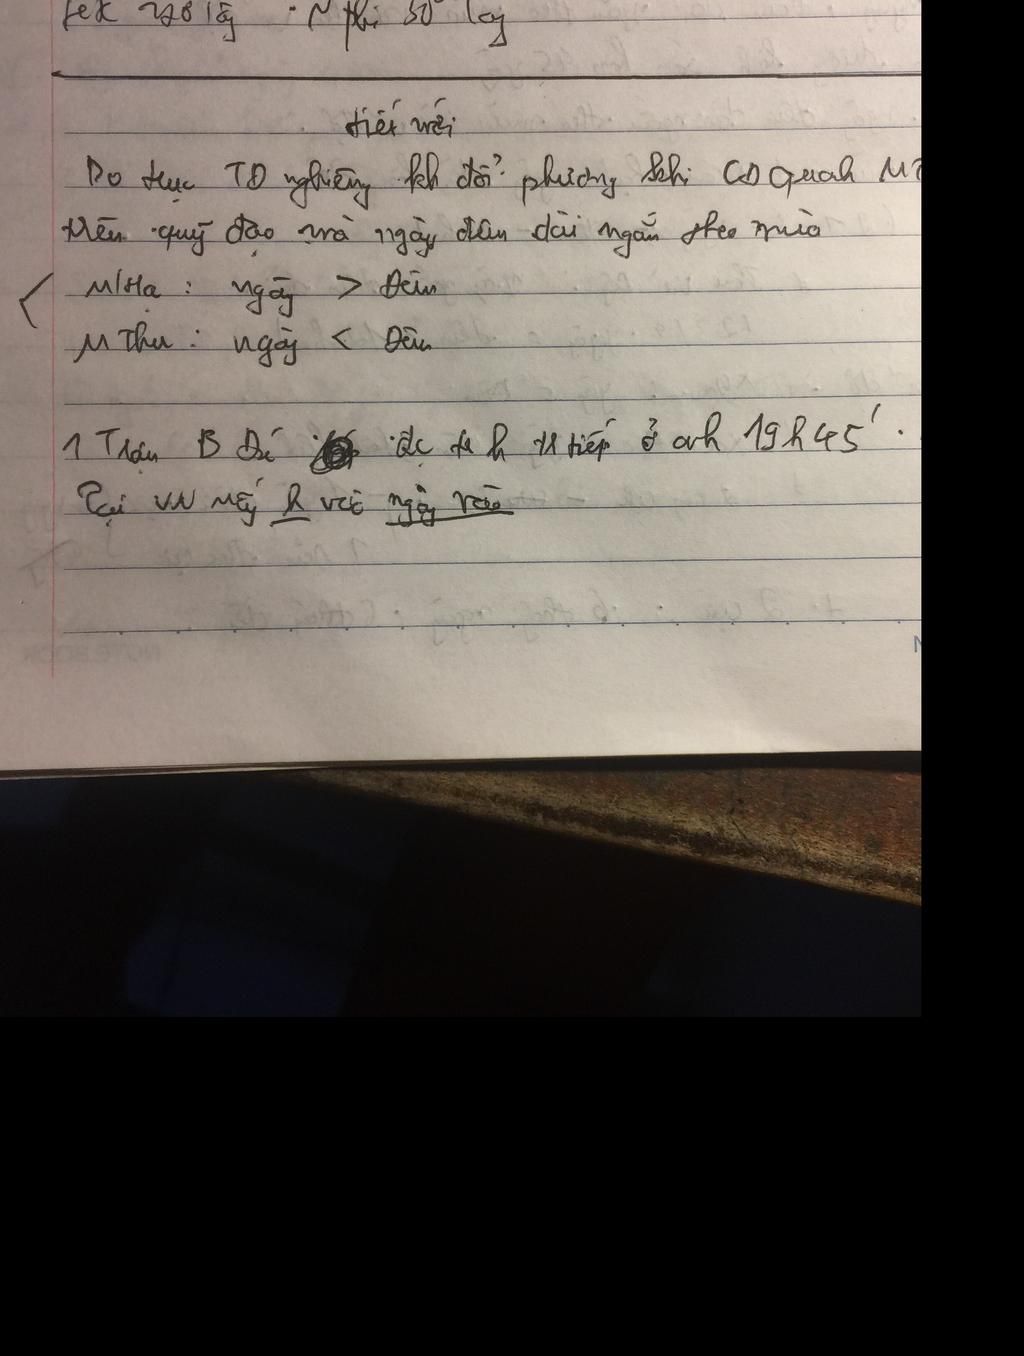 tiết mới
Do trục TĐ nghiêng kh đổi phương khi CĐ quanh MT
trên quỹ đạo mà ngày, đêm dài ngắn theo mùa
M Hạ : ngày > Đêm
M Thu : ngày < Đêm
1 Trận B Đá đc t h tr tiếp ở anh 19h45'.
Tại VN mấy h vào ngày nào